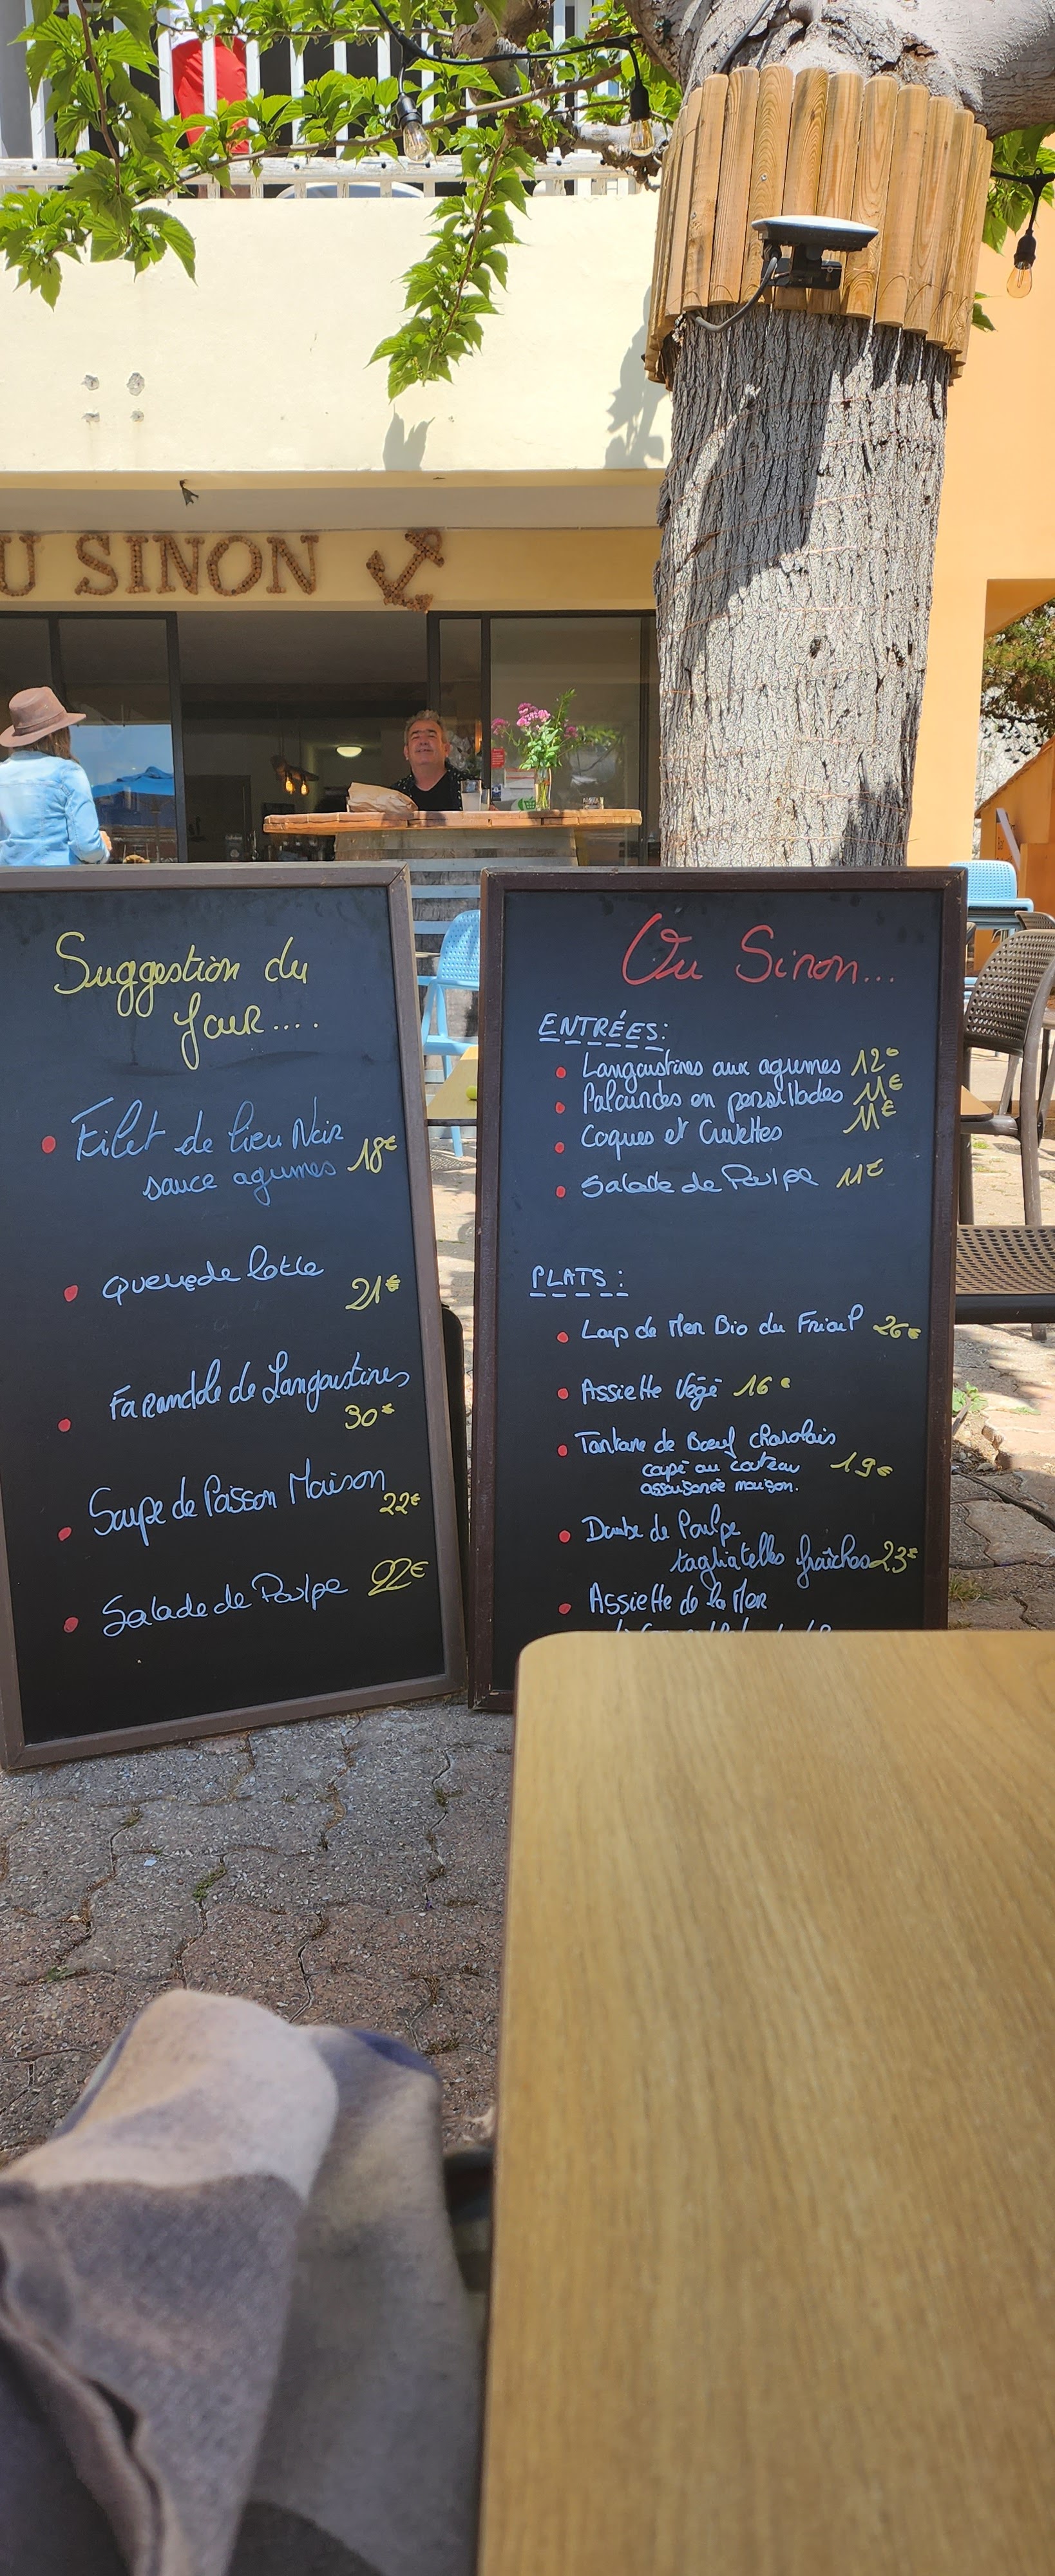 U SINON
Suggestion du
Jour....
Filet de lieu Noir
sauce agrumes 18€
Queue de lotte
21€
Farandole de Langoustines
30€
Soupe de Poisson Maison
22€
Salade de Poulpe 22€
Ou Sinon...
ENTRÉES:
Langoustines aux agrumes 12€
Palourdes en persillades 11€
Coques et Crevettes 11€
Salade de Poulpe 11€
PLATS:
Loup de Mer Bio du Frioul 26€
Assiette Végé 16€
Tartare de Bœuf charolais
coupé au couteau 19€
assaisonée maison.
Daube de Poulpe
tagliatelles fraîches 23€
Assiette de la Mer